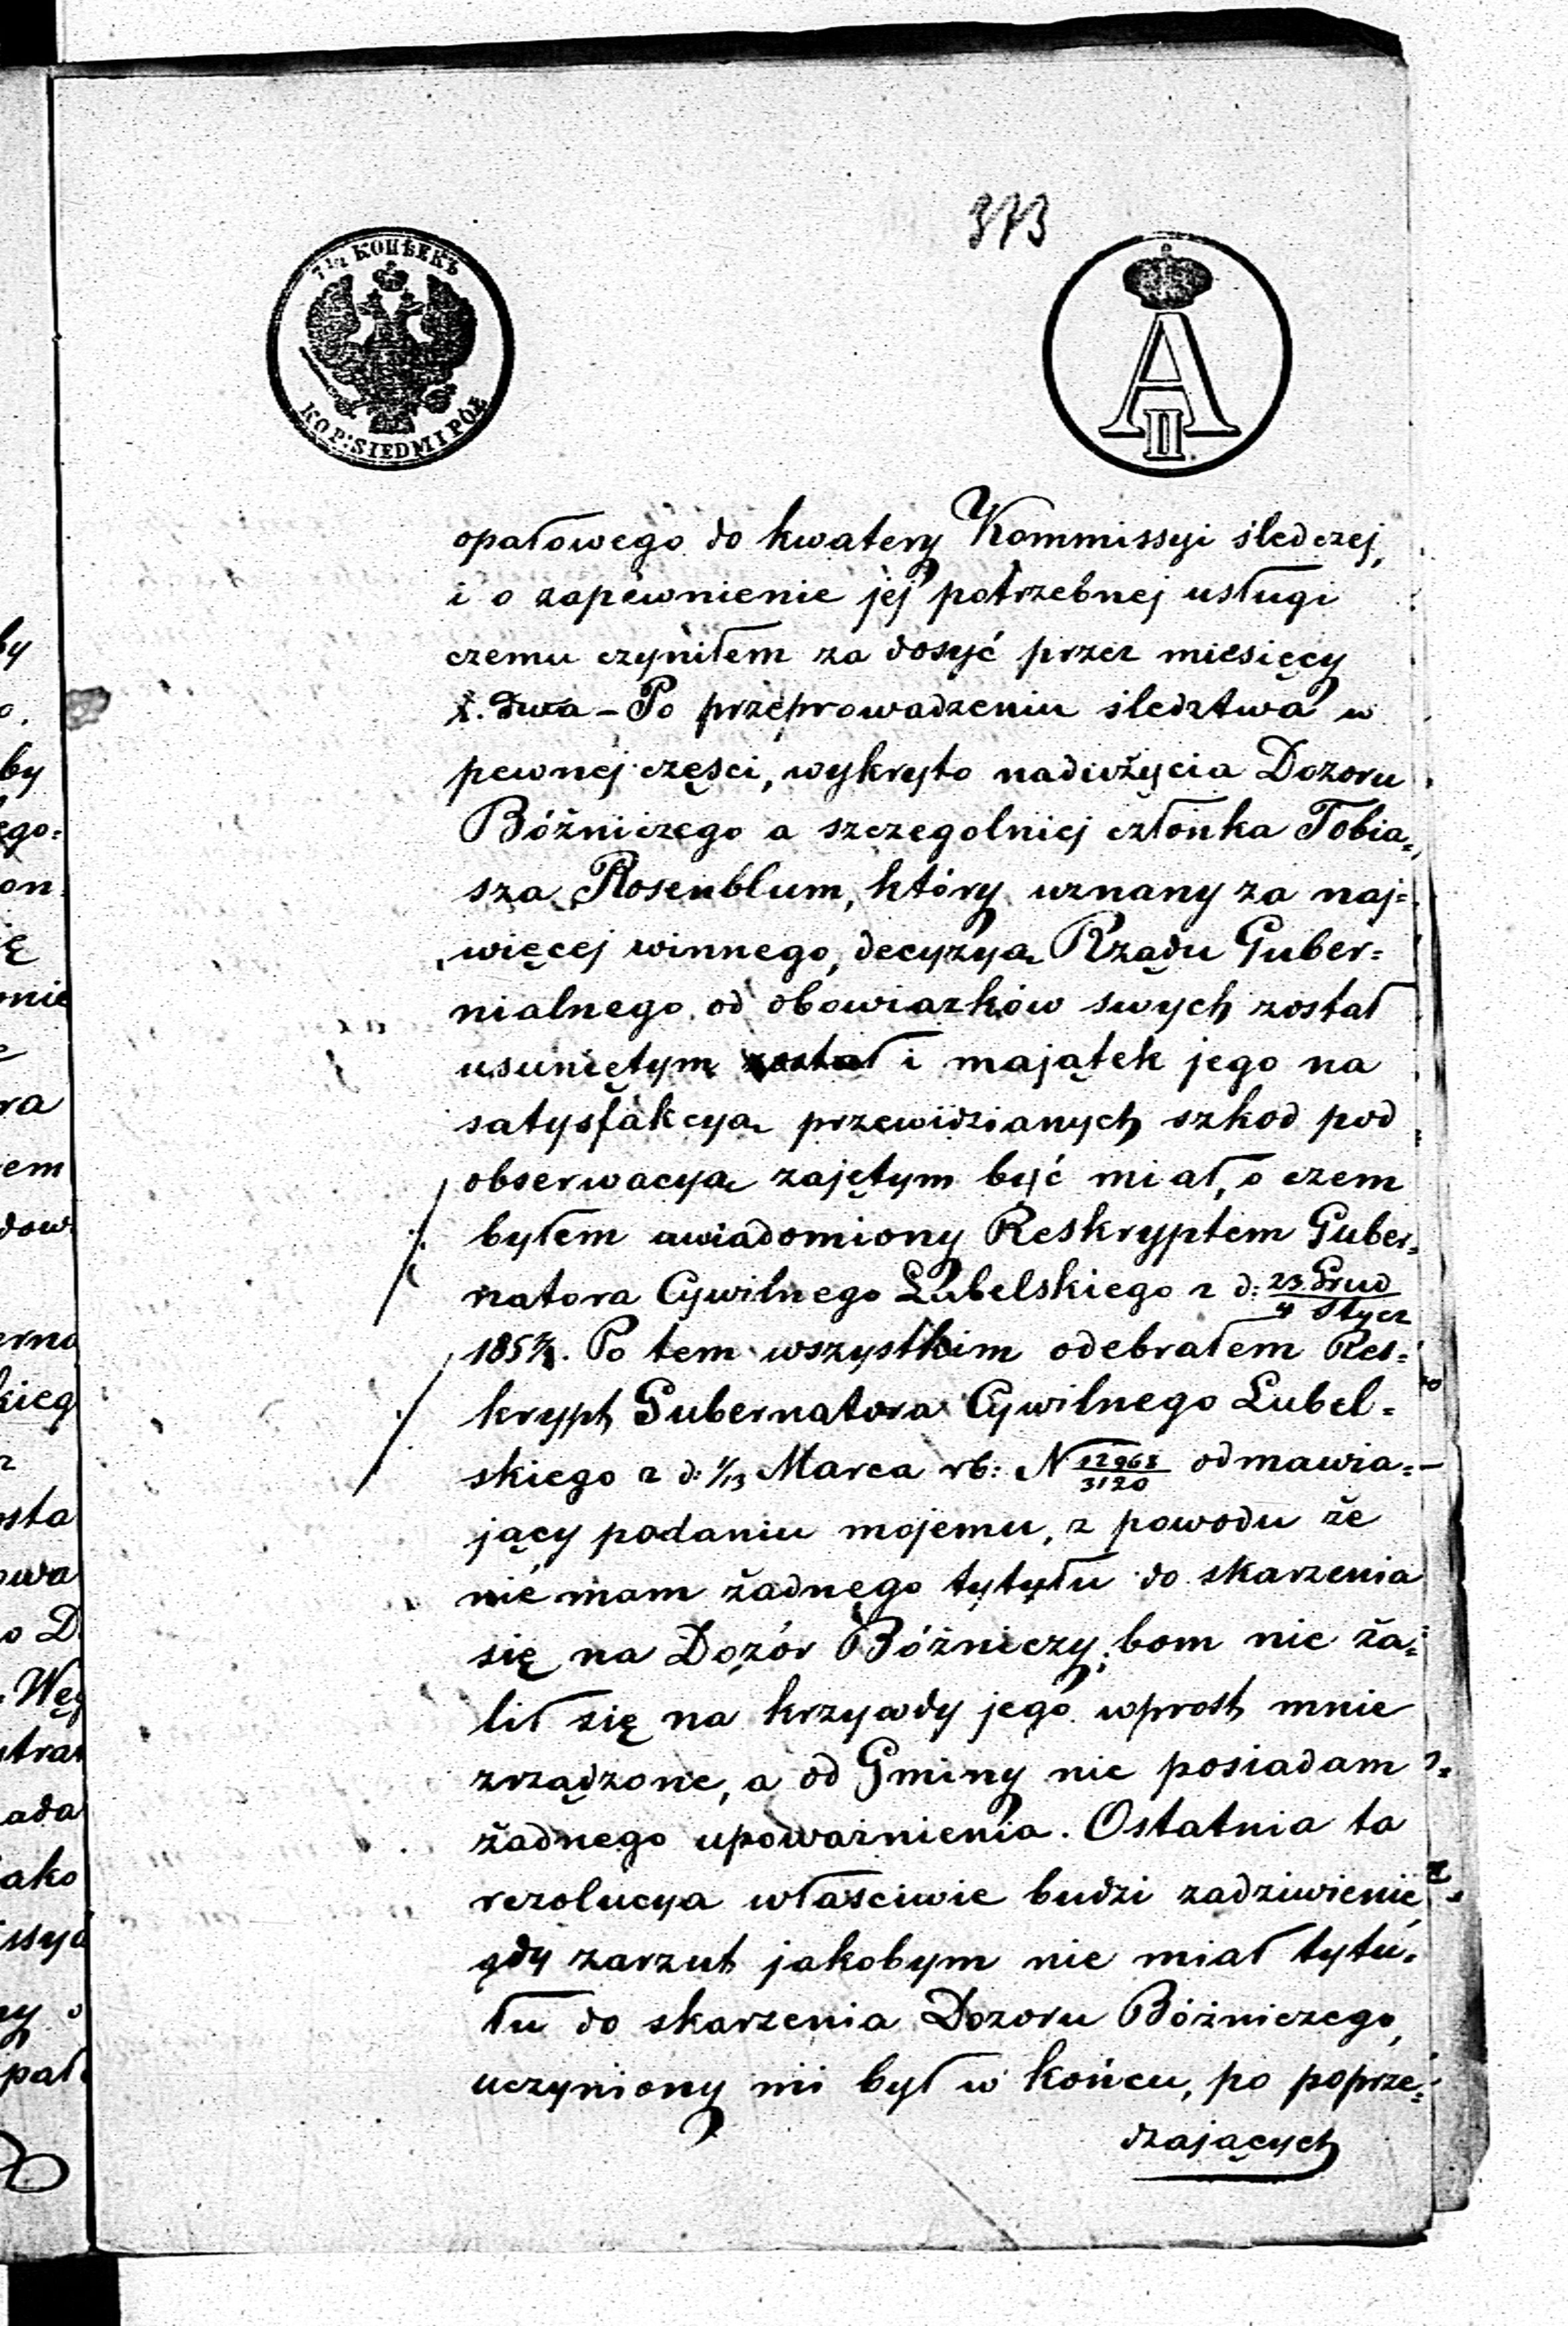 373
7 1/2 КОПѢЕКЪ
KOP: SIEDM I PÓŁ
A II
opałowego do kwatery Kommissyi śledczej,
i o zapewnienie jej potrzebnej usługi
czemu czyniłem za dosyć przez miesięcy
dwa – Po przeprowadzeniu śledztwa w
pewnej części, wykryto nadużycia Dozoru
Bóżniczego a szczegolniej członka Tobia=
sza Rosenblum, który uznany za naj=
więcej winnego, decyzyą Rządu Guber=
nialnego od obowiazków swych został
usuniętym został i majątek jego na
satysfakcyą przewidzianych szkod pod
obserwacyą zajętym być miał, o czem
byłem uwiadomiony Reskryptem Guber=
natora Cywilnego Lubelskiego z d: 23 Grud / 4 Stycz
185 . Po tem wszystkim odebrałem Res=
krypt Gubernatora Cywilnego Lubel=
skiego z d: 1/13 Marca rb: N 12968/3120 odmawia=
jący podaniu mojemu, z powodu że
nie mam żadnego tytyłu do skarzenia
się na Dozór Bóżniczy; bom nie ża=
lił się na krzywdy jego wprost mnie
zrządzone, a od Gminy nie posiadam
żadnego upoważnienia. Ostatnia ta
rezolucya właściwie budzi zadziwienie,
gdy zarzut jakobym nie miał tytu=
łu do skarzenia Dozoru Bóżniczego,
uczyniony mi był w końcu, po poprze=
dzających